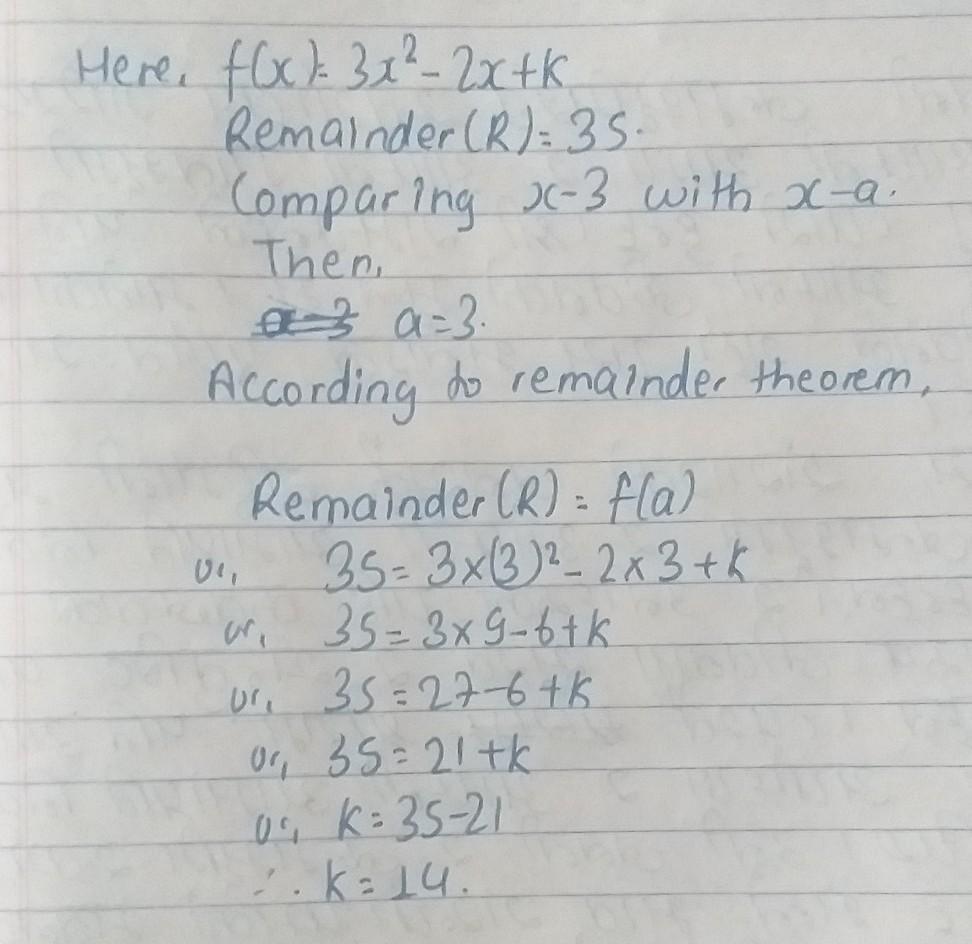 Here, f(x) = 3x² - 2x + k
Remainder (R) = 35.
Comparing x-3 with x-a.
Then,
a=3.
According to remainder theorem,
Remainder (R) = f(a)
or, 35 = 3×(3)² - 2×3 + k
or, 35 = 3×9-6+k
or, 35 = 27-6+k
or, 35 = 21+k
or, k = 35-21
∴ k = 14.